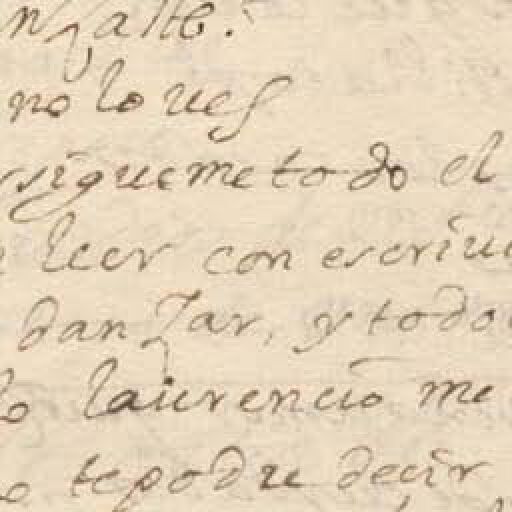 no lo ves
sigueme todo el
leer con escriui
danzar, y todo
laurencio me
te podre decir